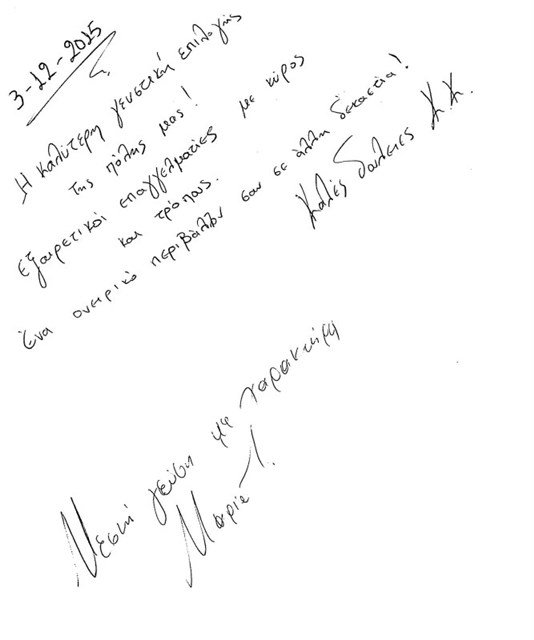 3-12-2015
Η καλύτερη γευστική επιλογής
της πόλης μας!
Εξαιρετικοί επαγγελματίες με κύρος
και τρόπους.
Ένα ονειρικό περιβάλλον σαν σε άλλη δεκαετία!
Καλές δουλειές Χ.Χ.
Μεστή γεύση με χαρακτήρα
Μαρία Τ.